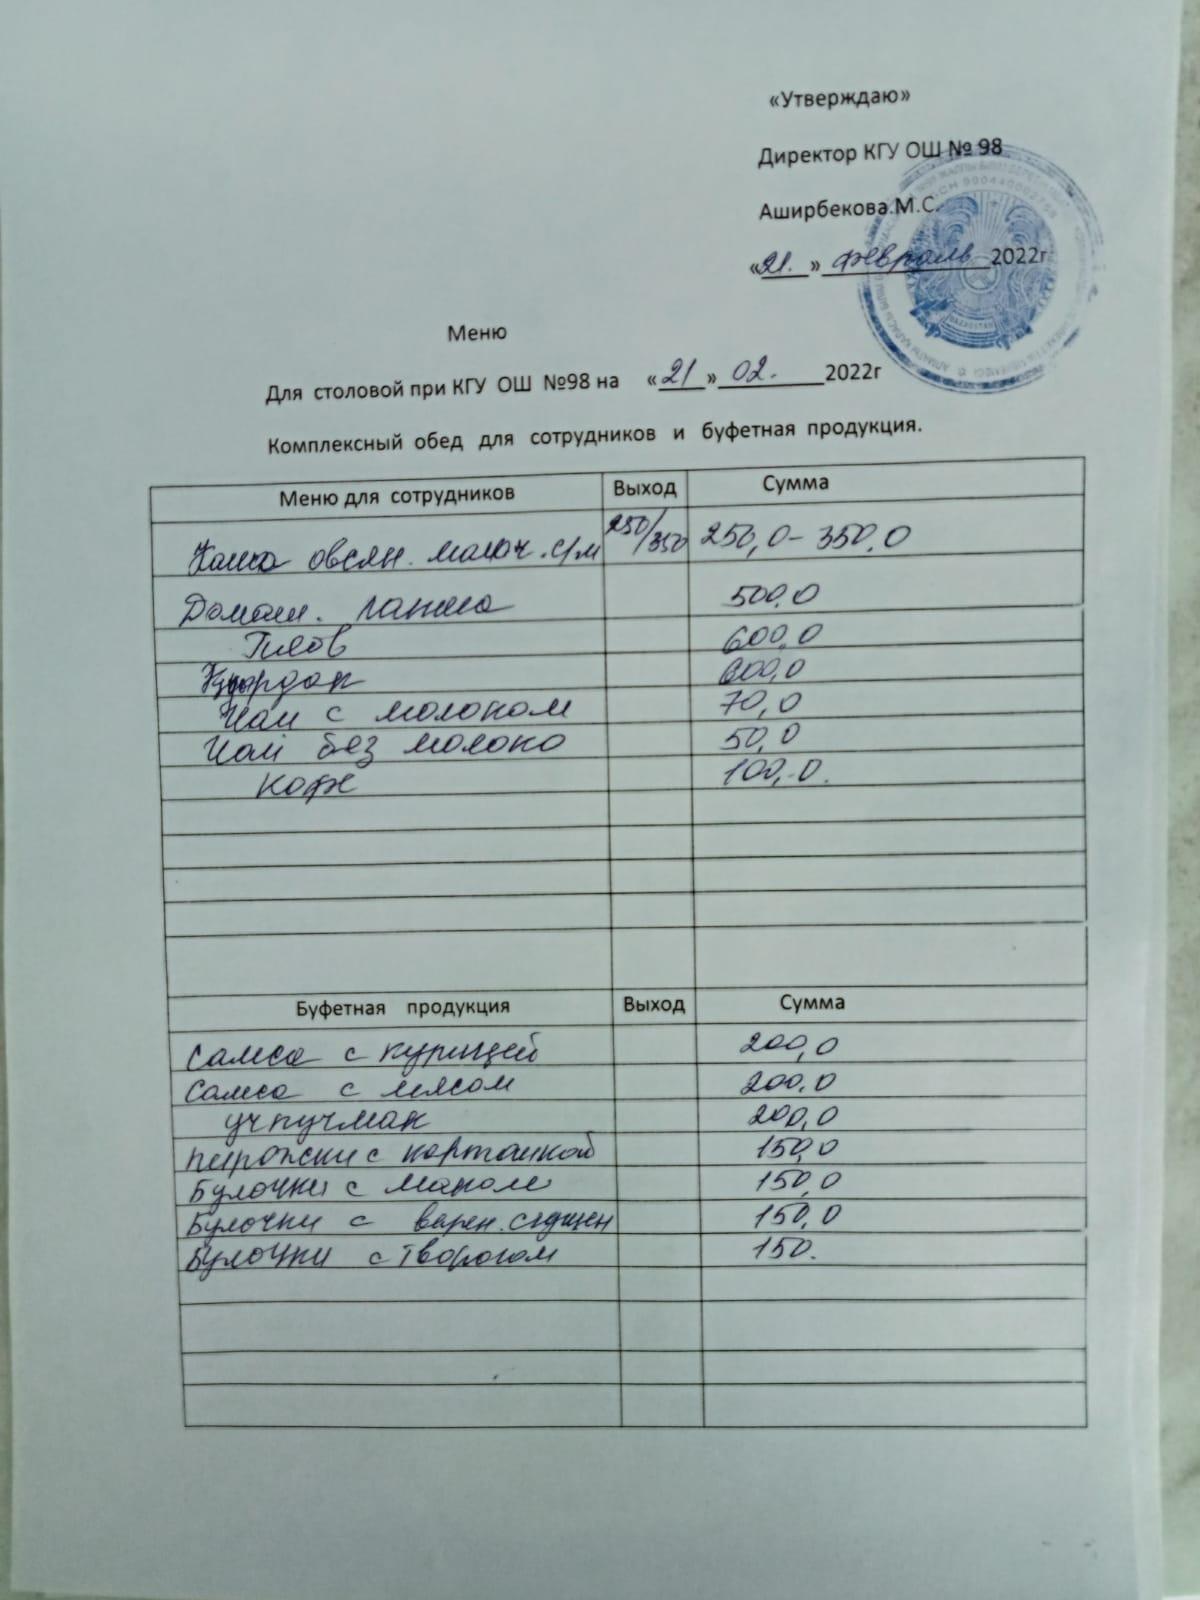 «Утверждаю»
Директор КГУ ОШ № 98
Аширбекова.М.С.
«21.» февраль 2022г
Меню
Для столовой при КГУ ОШ №98 на «21» 02. 2022г
Комплексный обед для сотрудников и буфетная продукция.
Меню для сотрудников Выход Сумма
Каша овсян. молоч. с/м 250/350 250,0-350,0
Домаш. лапша 500,0
Плов 600,0
Куырдак 600,0
Чай с молоком 70,0
Чай без молоко 50,0
кофе 100,-0.
Буфетная продукция Выход Сумма
Самса с курицей 200,0
Самса с мясом 200,0
учпучмак 200,0
пирожки с картошкой 150,0
Булочки с маком 150,0
Булочки с варен. сгущен 150,0
Булочки с творогом 150.
KAZAKHSTAN